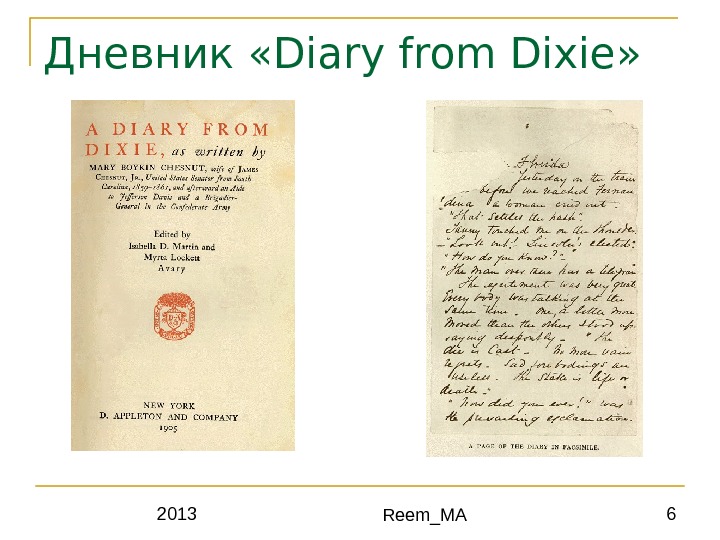 Дневник «Diary from Dixie»
A DIARY FROM
DIXIE, as written by
MARY BOYKIN CHESNUT, wife of JAMES
CHESNUT, JR., United States Senator from South
Carolina, 1859-1861, and afterward an Aide
to Jefferson Davis and a Brigadier-
General in the Confederate Army
Edited by
Isabella D. Martin and
Myrta Lockett
Avary
NEW YORK
D. APPLETON AND COMPANY
1905
Florida
Yesterday on the train
before we reached Fernan
dina a woman cried out -
"That settles the hash".
Tanny touched me on the shoulder
- "Look out! Lincoln's elected."
"How do you know?" -
"The man over there has a telegram
The excitement was very great
Every body was talking at the
same time. One, a little more
moved than the others stood up
saying despondently - "The
die is Cast - No more vain
regrets - Sad forebodings are
useless. The stake is life or
death -"
"How did you ever!" was
the prevailing exclamation.
A PAGE OF THE DIARY IN FACSIMILE.
2013
Reem_MA
6